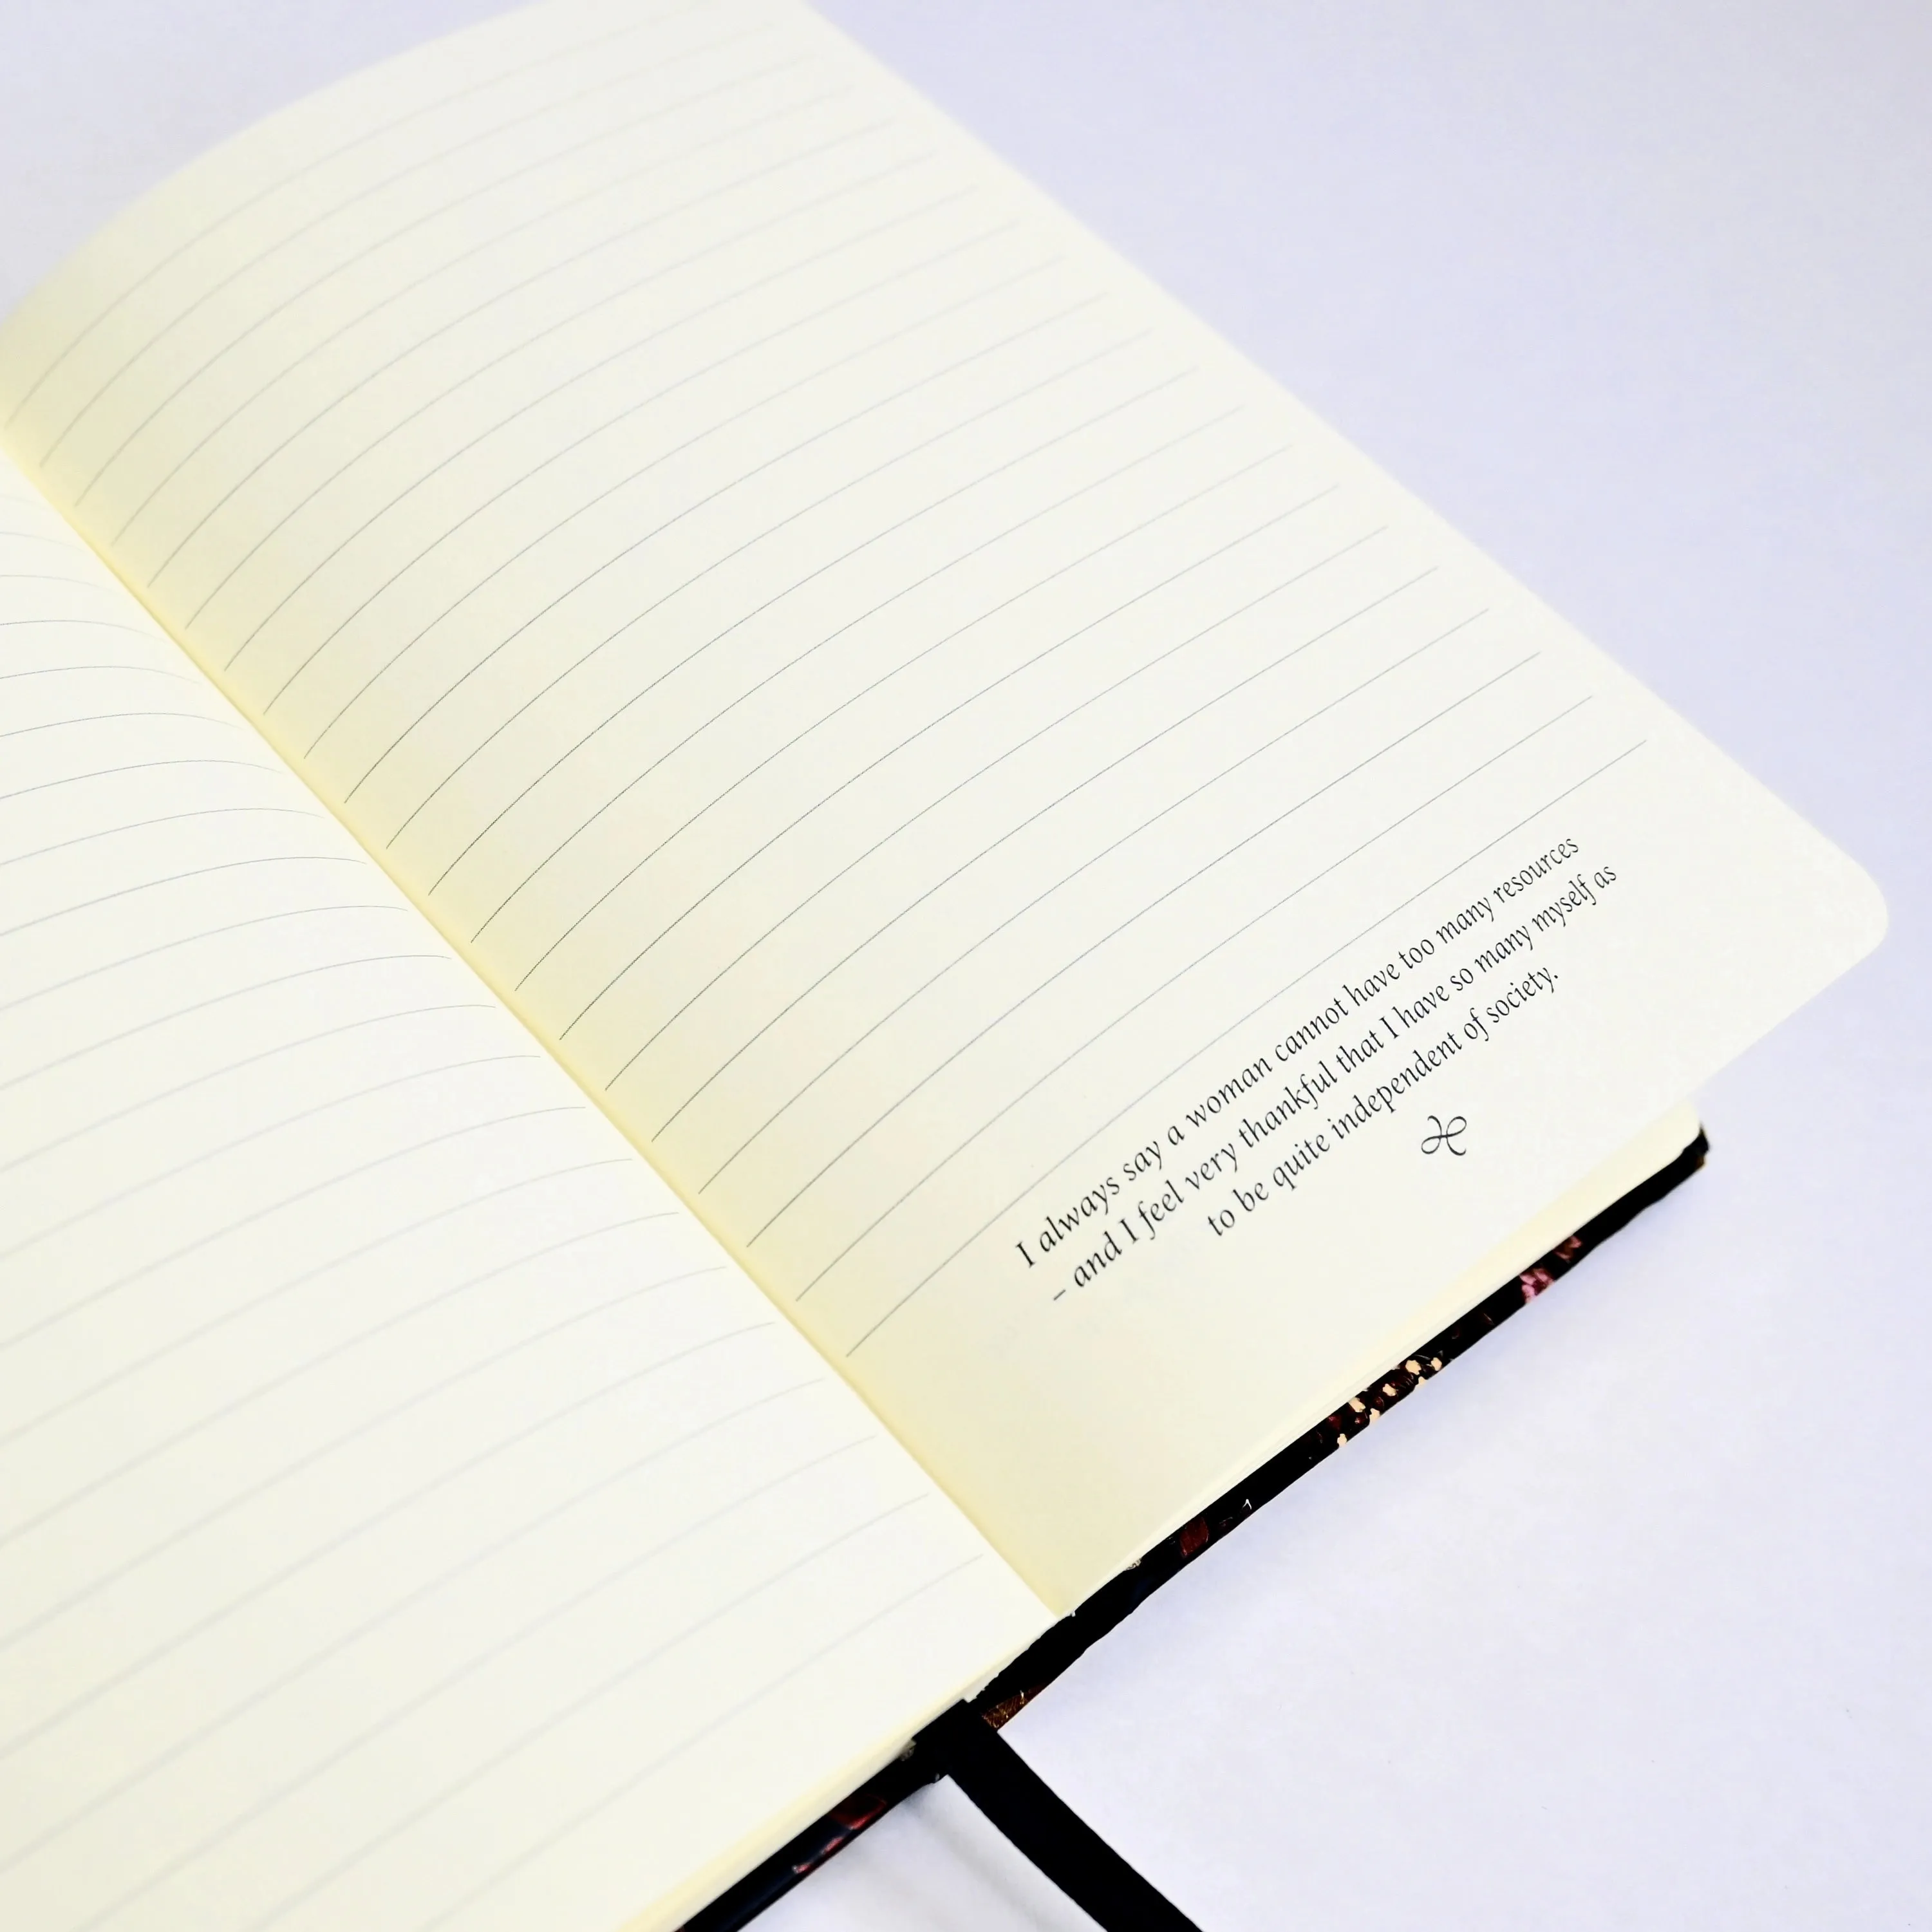 I always say a woman cannot have too many resources
– and I feel very thankful that I have so many myself as
to be quite independent of society.